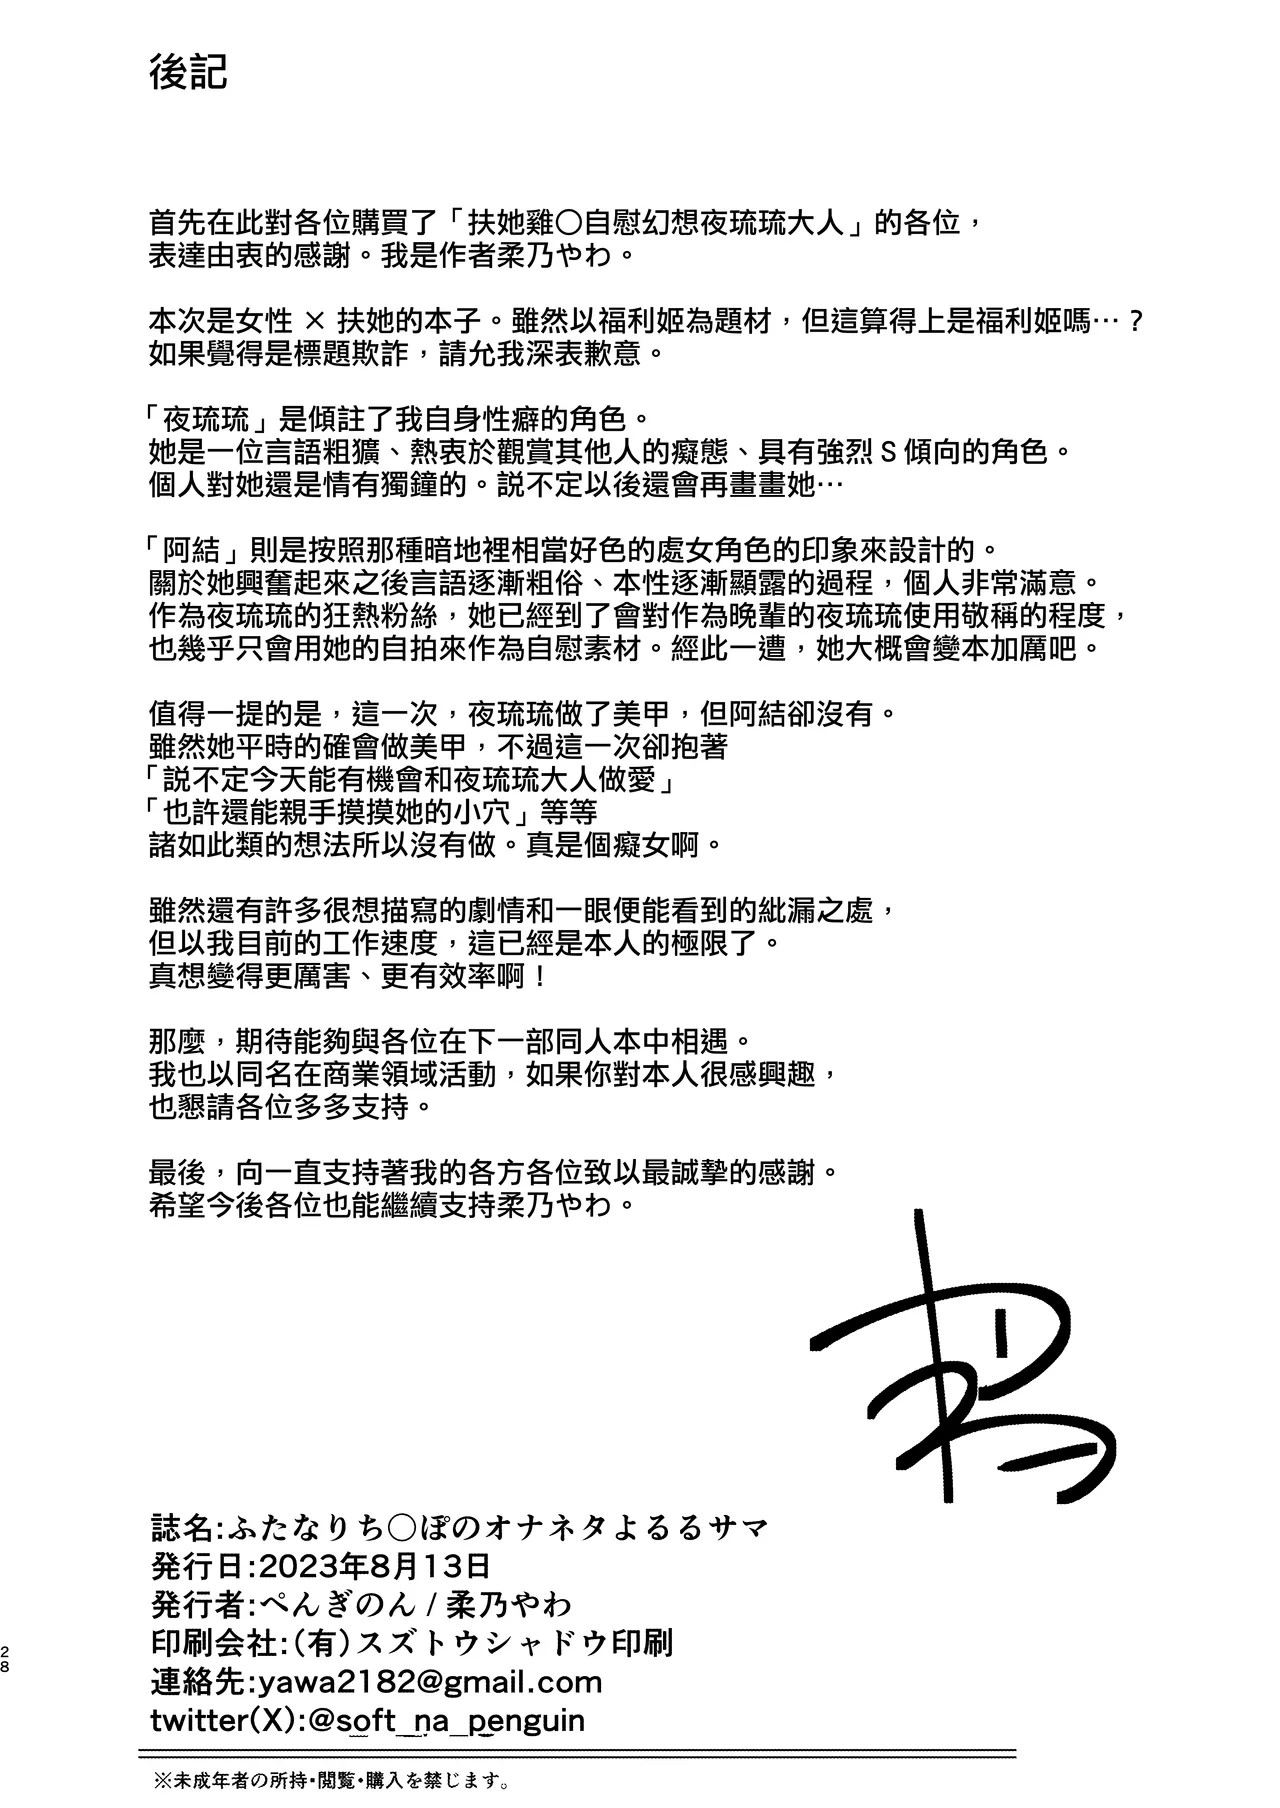 後記
首先在此對各位購買了「扶她雞〇自慰幻想夜琉琉大人」的各位，
表達由衷的感謝。我是作者柔乃やわ。
本次是女性 × 扶她的本子。雖然以福利姬為題材，但這算得上是福利姬嗎…？
如果覺得是標題欺詐，請允我深表歉意。
「夜琉琉」是傾註了我自身性癖的角色。
她是一位言語粗獷、熱衷於觀賞其他人的癡態、具有強烈 S 傾向的角色。
個人對她還是情有獨鐘的。説不定以後還會再畫畫她…
「阿結」則是按照那種暗地裡相當好色的處女角色的印象來設計的。
關於她興奮起來之後言語逐漸粗俗、本性逐漸顯露的過程，個人非常滿意。
作為夜琉琉的狂熱粉絲，她已經到了會對作為晚輩的夜琉琉使用敬稱的程度，
也幾乎只會用她的自拍來作為自慰素材。經此一遭，她大概會變本加厲吧。
值得一提的是，這一次，夜琉琉做了美甲，但阿結卻沒有。
雖然她平時的確會做美甲，不過這一次卻抱著
「説不定今天能有機會和夜琉琉大人做愛」
「也許還能親手摸摸她的小穴」等等
諸如此類的想法所以沒有做。真是個癡女啊。
雖然還有許多很想描寫的劇情和一眼便能看到的紕漏之處，
但以我目前的工作速度，這已經是本人的極限了。
真想變得更厲害、更有效率啊！
那麼，期待能夠與各位在下一部同人本中相遇。
我也以同名在商業領域活動，如果你對本人很感興趣，
也懇請各位多多支持。
最後，向一直支持著我的各方各位致以最誠摯的感謝。
希望今後各位也能繼續支持柔乃やわ。
誌名:ふたなりち〇ぽのオナネタよるるサマ
発行日:2023年8月13日
発行者:ぺんぎのん / 柔乃やわ
印刷会社:(有)スズトウシャドウ印刷
連絡先:yawa2182@gmail.com
twitter(X):@soft_na_penguin
※未成年者の所持・閲覧・購入を禁じます。
28